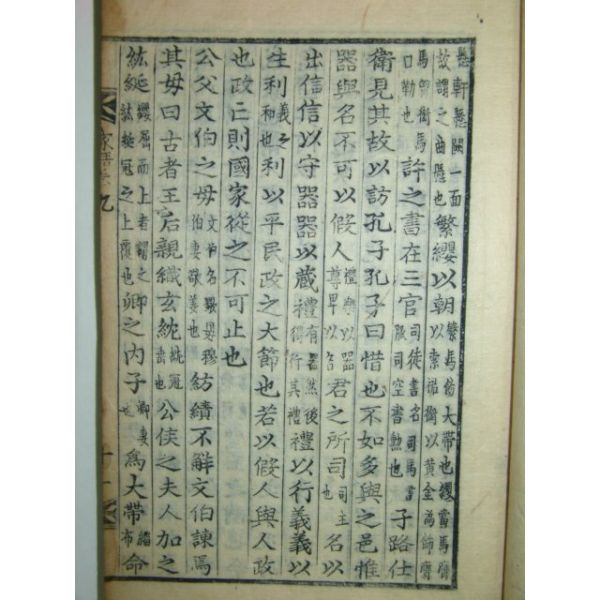 懸軒懸闕一面故謂之曲懸也繁纓以朝繁馬飾大帶也纓當馬膺以索裙銜以黃金爲飾膺
馬銜馬口勒也許之書在三官司徒書名司馬書服司空書勳也子路仕
衛見其故以訪孔子孔子曰惜也不如多與之邑惟
器與名不可以假人禮樂以器尊卑以名君之所司司主也名以
出信信以守器器以蔵禮有器然後得行其禮禮以行義義以
生利義之和也利以平民政之大節也若以假人與人政
也政亡則國家從之不可止也
公父文伯之母文伯名歜母穆伯妻敬姜也紡績不解文伯諫焉
其母曰古者王后親織玄紞紞冠垂也公侯之夫人加之
紘綖纓屈而上者謂之紘綖冠之上覆也卿之内子卿妻也爲大帶緇布命
家語卷九
十一